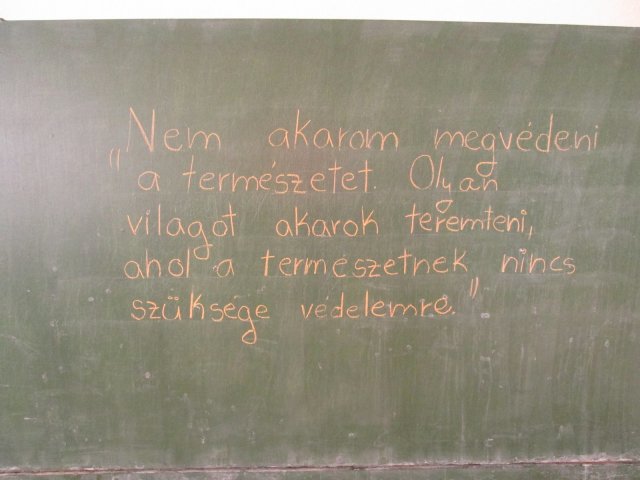 „Nem akarom megvédeni
a természetet. Olyan
világot akarok teremteni,
ahol a természetnek nincs
szüksége védelemre."